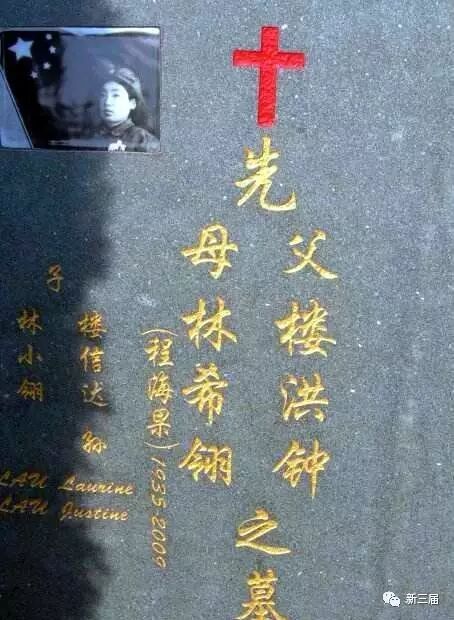 先
父楼洪钟
母林希翎
之墓
(程海果)1935.2009
子
楼信达 孙
林小翎
LAU Laurine
LAU Justine
新三届